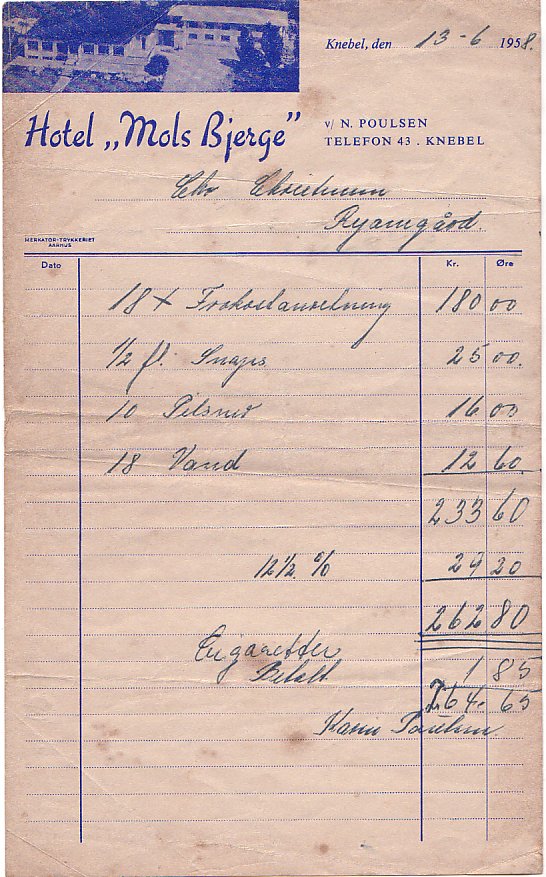 Knebel, den 13-6 1958.
Hotel „Mols Bjerge"
v/ N. POULSEN
TELEFON 43 . KNEBEL
Chr Christensen
Ryomgård.
MERKATOR-TRYKKERIET
AARHUS
Dato Kr. Øre
18 x Frokostanretning 180 00
1/2 fl. Snaps 25 00.
10 Pilsner 16 00
18 Vand 12 60.
233 60
12 1/2 % 29 20
262 80
Cigaretter
Betalt 1 85
264. 65
Karen Poulsen